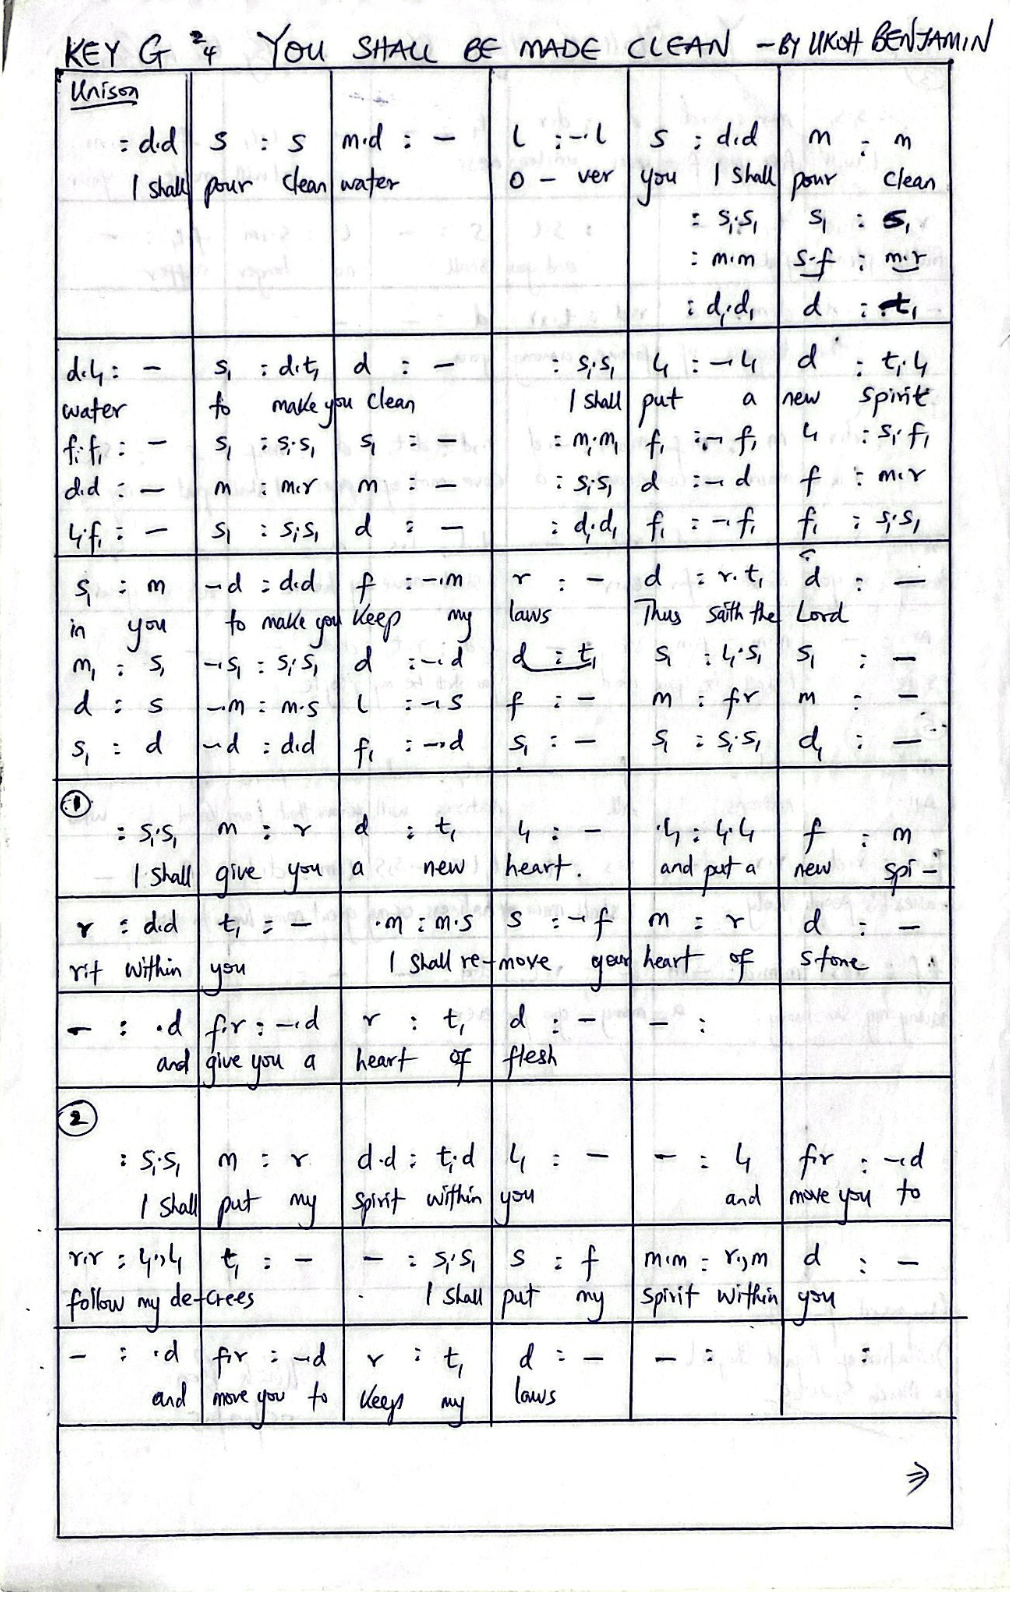 KEY G 2/4 YOU SHALL BE MADE CLEAN - BY UKOH BENJAMIN
Unison
: d.d | s : s | m.d : - | l : -.l | s : d.d | m : m
I shall pour clean water o - ver you I shall pour clean
: s₁.s₁ | s₁ : s₁
: m.m | s.f : m.r
: d₁.d₁ | d : t₁
d.l₁ : - | s₁ : d.t₁ | d : - | : s₁.s₁ | l₁ : -.l₁ | d : t₁.l₁
water to make you clean I shall put a new spirit
f₁.f₁ : - | s₁ : s₁.s₁ | s₁ : - | : m₁.m₁ | f₁ : -.f₁ | l₁ : s₁.f₁
d.d : - | m : m.r | m : - | : s₁.s₁ | d : -.d | f : m.r
l₁.f₁ : - | s₁ : s₁.s₁ | d : - | : d₁.d₁ | f₁ : -.f₁ | f₁ : s₁.s₁
s₁ : m | -.d : d.d | f : -.m | r : - | d : r.t₁ | d : -
in you to make you keep my laws Thus saith the Lord
m₁ : s₁ | -.s₁ : s₁.s₁ | d : -.d | d : t₁ | s₁ : l₁.s₁ | s₁ : -
d : s | -.m : m.s | l : -.s | f : - | m : f.r | m : -
s₁ : d | -.d : d.d | f₁ : -.d | s₁ : - | s₁ : s₁.s₁ | d₁ : -
1
: s₁.s₁ | m : r | d : t₁ | l₁ : - | .l₁ : l₁.l₁ | f : m
I shall give you a new heart. and put a new spi-
r : d.d | t₁ : - | .m : m.s | s : -.f | m : r | d : -
rit within you I shall re-move your heart of stone
- : .d | f.r : -.d | r : t₁ | d : - | - :
and give you a heart of flesh
2
: s₁.s₁ | m : r | d.d : t₁.d | l₁ : - | - : l₁ | f.r : -.d
I shall put my spirit within you and move you to
r.r : l₁.,l₁ | t₁ : - | - : s₁.s₁ | s : f | m.m : r.,m | d : -
follow my de-crees I shall put my spirit within you
- : .d | f.r : -.d | r : t₁ | d : - | - : | :
and move you to keep my laws
⇒